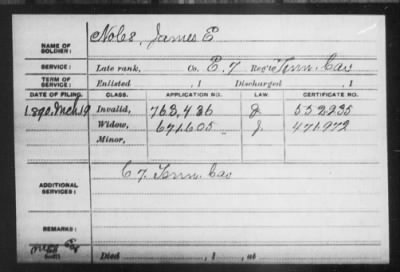 NAME OF SOLDIER: Nobes, James E
SERVICE: Late rank, Co. E. 7 Reg't Tenn. Cav
TERM OF SERVICE: Enlisted , 1 Discharged , 1
DATE OF FILING. CLASS. APPLICATION NO. LAW. CERTIFICATE NO.
1890, Mch 19 Invalid, 763,436 J 552235
Widow, 671,605 J. 471,972
Minor,
ADDITIONAL SERVICES: C 7. Tenn. Cav
REMARKS:
Died , 1 , at